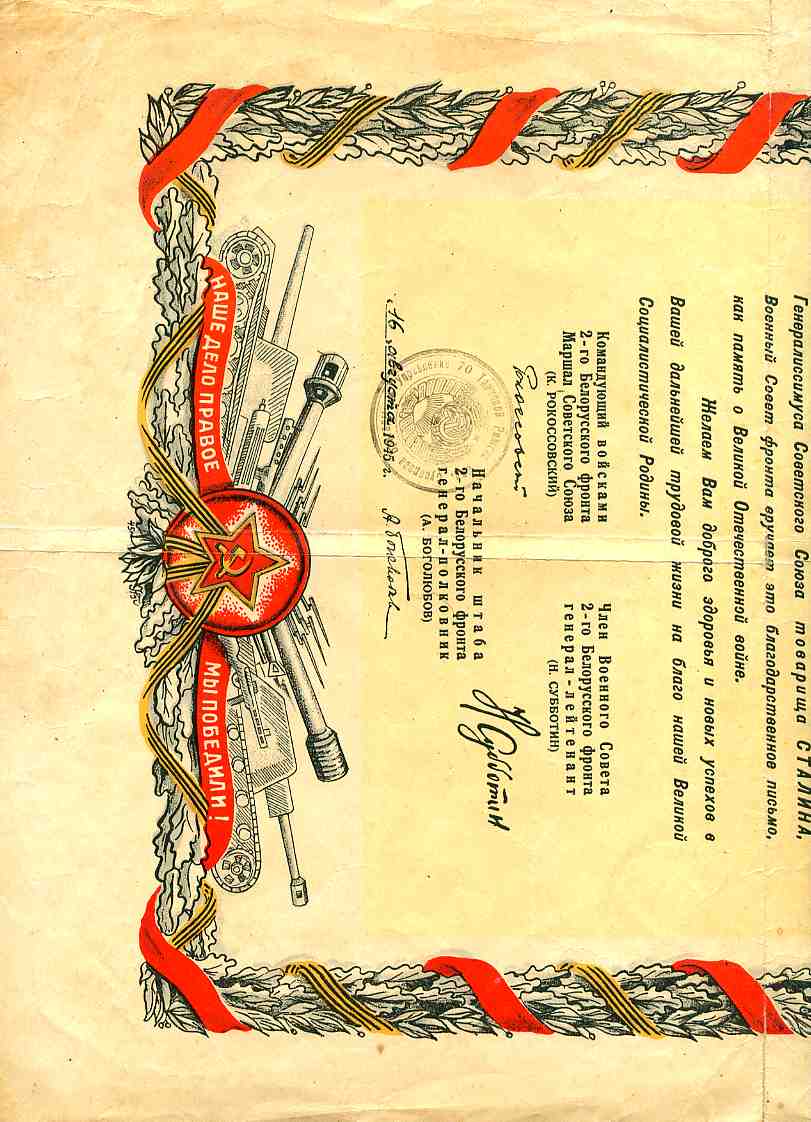 Генералиссимуса Советского Союза товарища СТАЛИНА,
Военный Совет фронта вручает это благодарственное письмо,
как память о Великой Отечественной войне.
Желаем Вам доброго здоровья и новых успехов в
Вашей дальнейшей трудовой жизни на благо нашей Великой
Социалистической Родины.
Командующий войсками
2-го Белорусского фронта
Маршал Советского Союза
(К. РОКОССОВСКИЙ)
Член Военного Совета
2-го Белорусского фронта
генерал-лейтенант
(Н. СУББОТИН)
Н Субботин
Начальник штаба
2-го Белорусского фронта
генерал-полковник
(А. БОГОЛЮБОВ)
70
„16 „ августа 1945 г.
НАШЕ ДЕЛО ПРАВОЕ
МЫ ПОБЕДИЛИ!